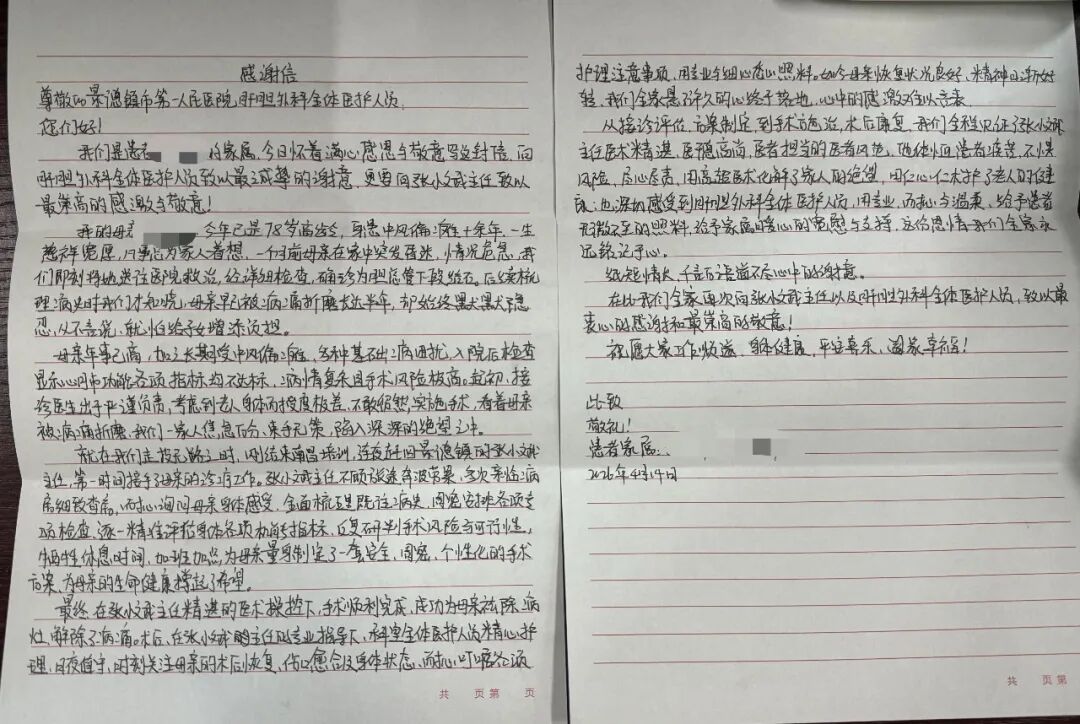 感谢信
尊敬的景德镇市第一人民医院肝胆外科全体医护人员
您们好!
我们是患者 的家属,今日怀着满心感恩与敬意写这封信,向
肝胆外科全体医护人员致以最诚挚的谢意,更要向张小斌主任致以
最崇高的感激与敬意!
我的母亲 今年已是78岁高龄,身患中风偏瘫十余年,一生
慈祥宽厚,凡事总为家人着想,一个月前母亲在家中突发昏迷,情况危急,我
们即刻将她送往医院救治,经详细检查,确诊为胆总管下段结石,后续梳
理病史时我们才知晓,母亲早已被病痛折磨长达半年,却始终默默隐
忍,从不言说,就怕给子女增添负担。
母亲年事已高,加之长期受中风偏瘫、多种基础病困扰,入院后检查
显示心肺功能各项指标均不达标,病情复杂且手术风险极高。起初,接
诊医生出于严谨负责,考虑到老人身体耐受度极差,不敢贸然实施手术,看着母亲
被病痛折磨,我们一家人焦急万分、束手无策,陷入深深的绝望之中。
就在我们走投无路之时,刚结束南昌培训,连夜赶回景德镇的张小斌
主任,第一时间接手了母亲的诊疗工作。张小斌主任不顾旅途奔波劳累,多次亲临病
房细致查房,耐心询问母亲身体感受,全面梳理既往病史,周密安排各项专
项检查,逐一精准评估身体各项机能指标,反复研判手术风险与可行性,
牺牲休息时间,加班加点,为母亲量身制定了一套安全、周密、个性化的手术
方案,为母亲的生命健康撑起了希望。
最终,在张小斌主任精湛的医术操控下,手术顺利完成,成功为母亲祛除病
灶,解除了病痛。术后,在张小斌主任的专业指导下,科室全体医护人员精心护
理,日夜值守,时刻关注母亲的术后恢复,伤口愈合及身体状态,耐心叮嘱各项
共 页 第 页
护理注意事项,用专业与细心悉心照料。如今母亲恢复状况良好、精神日渐好
转,我们全家悬了许久的心终于落地,心中的感激难以言表。
从接诊评估、方案制定,到手术救治,术后康复,我们全程见证了张小斌
主任医术精湛、医德高尚,医者担当的医者风范,他体恤患者疾苦,不惧
风险,尽心尽责,用高超医术化解了家人的绝望,用仁心仁术守护了老人的健
康;也深切感受到肝胆外科全体医护人员,用专业、耐心与温柔,给予患者
无微不至的照料,给予家属暖心的宽慰与支持,这份恩情我们全家永
远铭记于心。
纸短情长,千言万语道不尽心中的谢意。
在此我们全家再次向张小斌主任以及肝胆外科全体医护人员,致以最
衷心的感谢和最崇高的敬意!
祝愿大家工作顺遂、身体健康,平安喜乐、阖家幸福!
此致
敬礼!
患者家属:
2026年4月19日
共 页 第